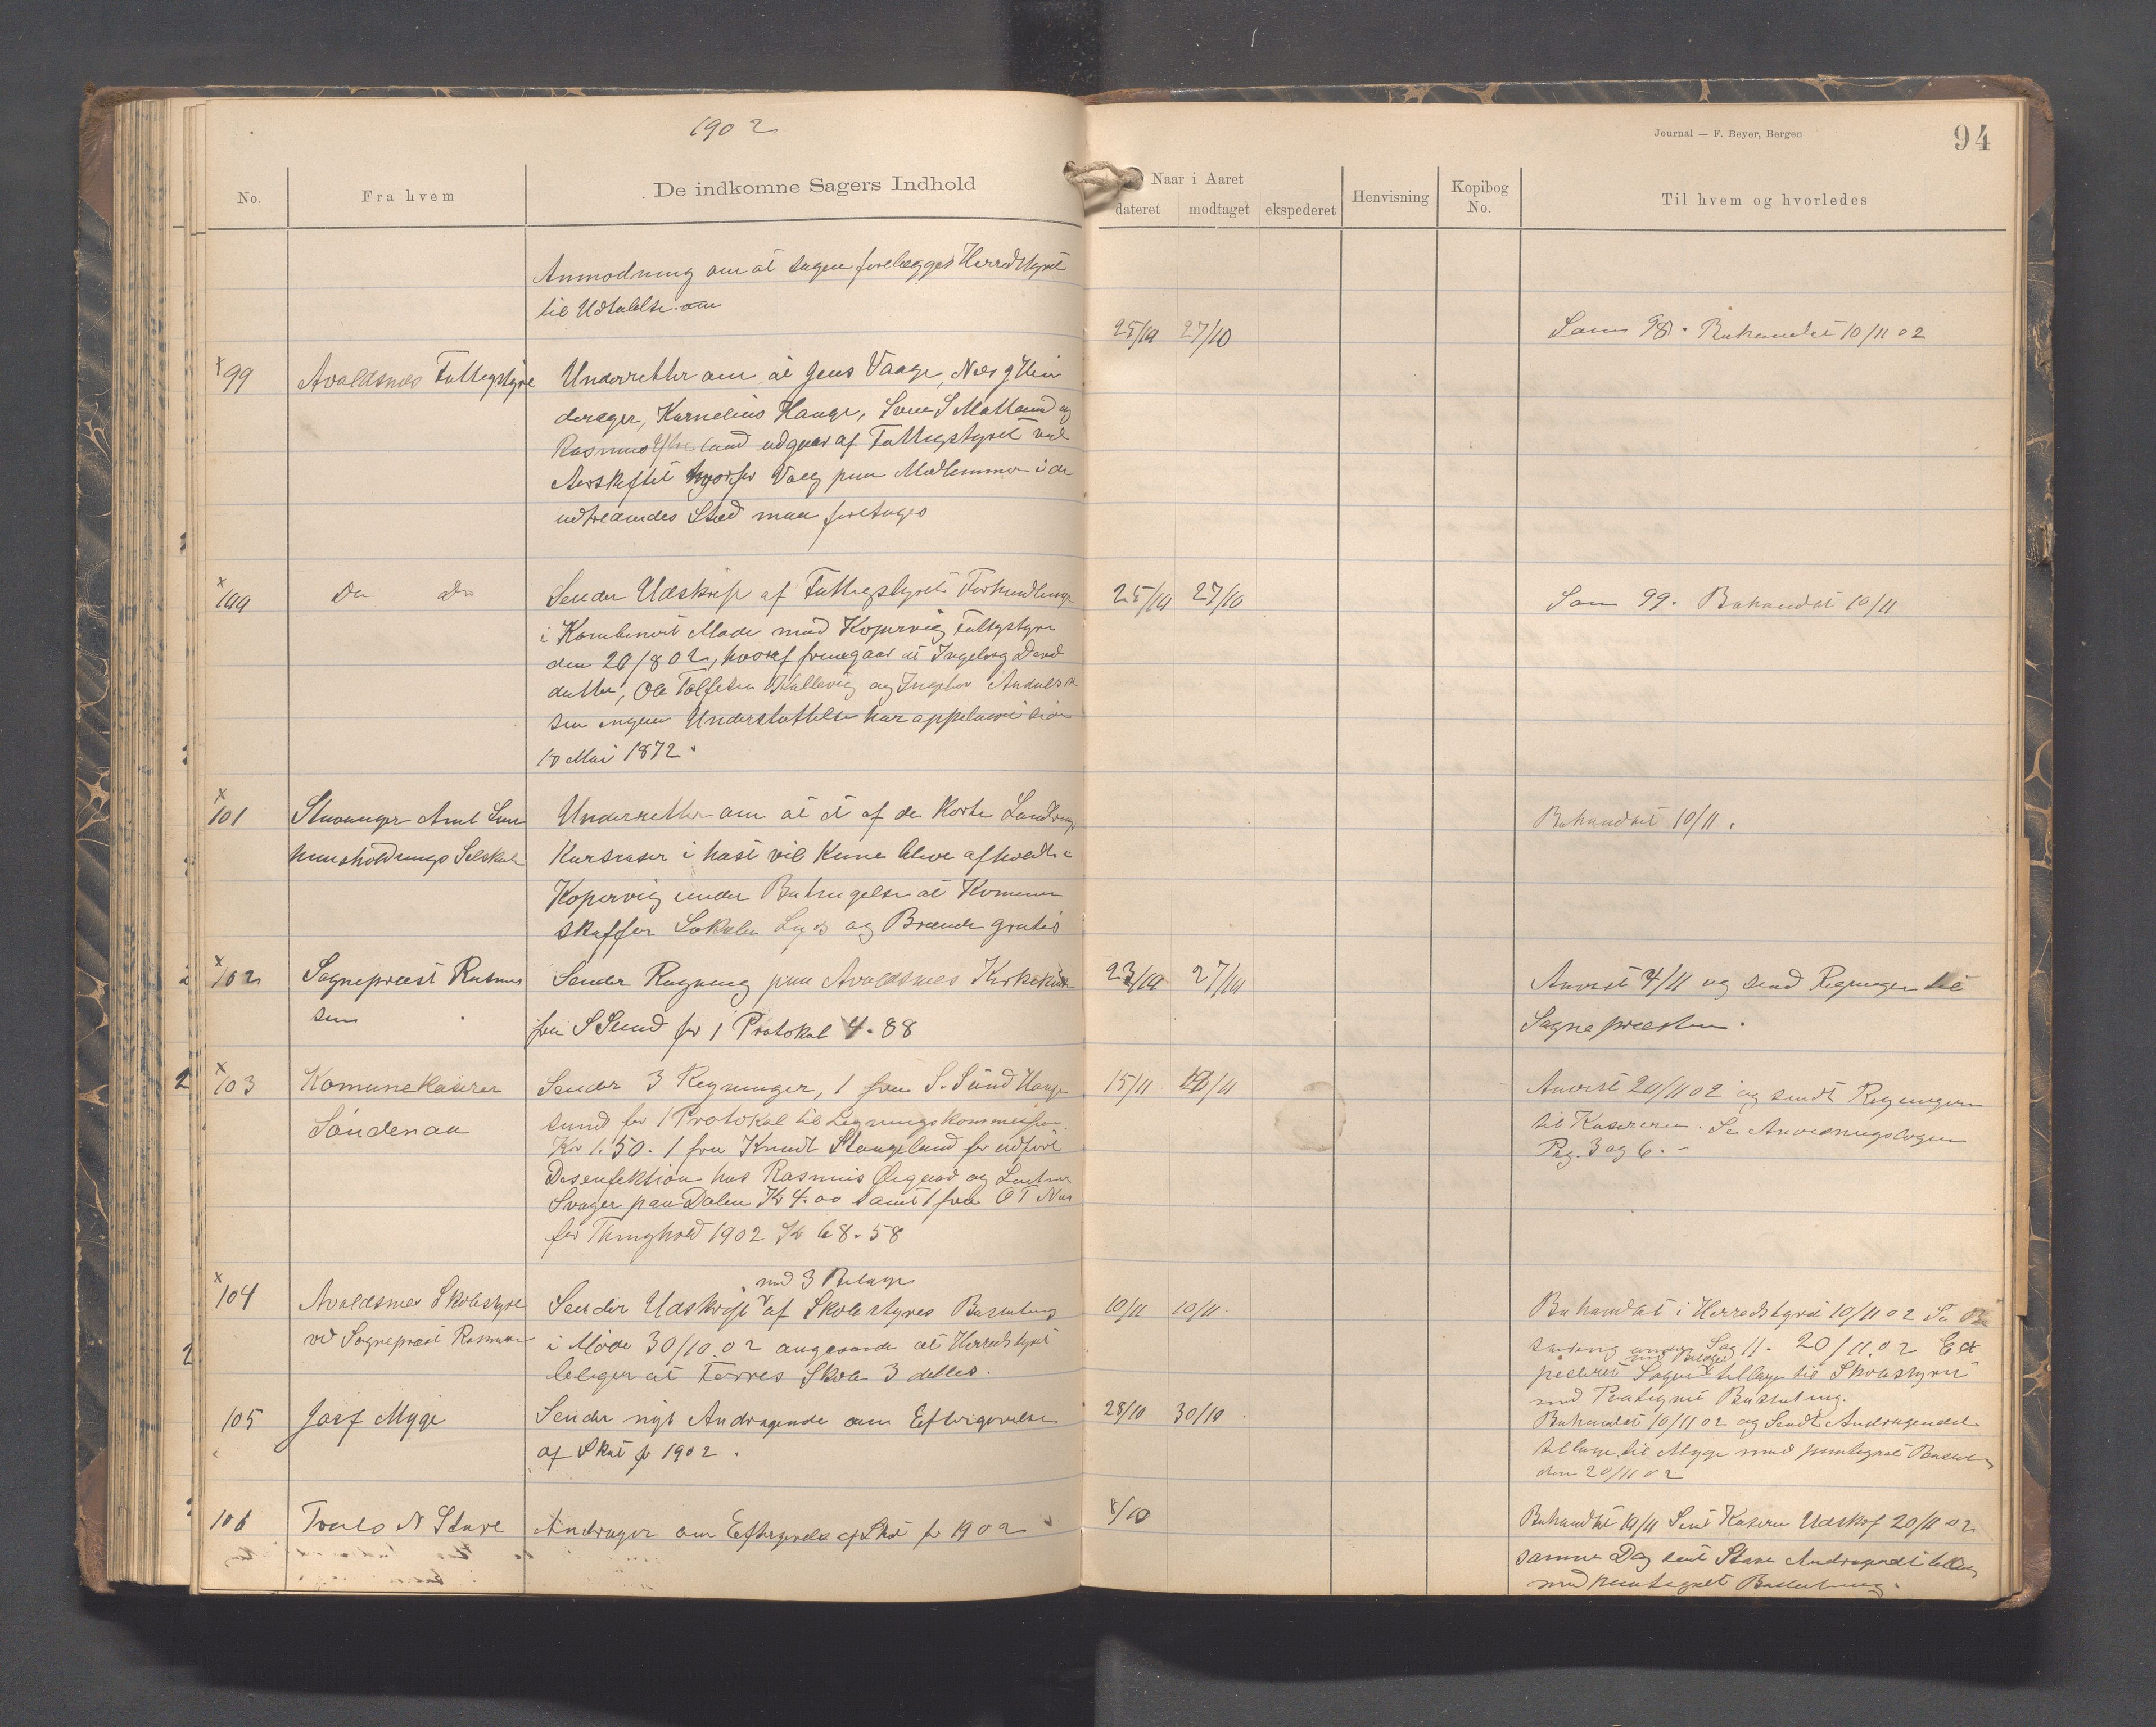 1902
Journal — F. Beyer, Bergen
94
No.
Fra hvem
De indkomne Sagers Indhold
Naar i Aaret
dateret
modtaget
ekspederet
Henvisning
Kopibog No.
Til hvem og hvorledes
Anmodning om at sagen forelægges Herredstyret
til Udtalelse
25/10 27/10
Som 98. Behandlet 10/11 02
x 99 Avaldsnes Fattigstyre
Underretter om at Jens Vaage, Nils
Kornelius Hauge, Sven S Matland og
Rasmus udgaar af Fattigstyret ved
Aarskiftet hvorfor Valg paa Medlemmer i de
udtrædendes Sted maa foretages
x 100 Do Do
Sender Udskrift af Fattigstyret Forhandlinger
i Kombineret Møde med Kopervig Fattigstyre
den 20/8 02, hvoraf fremgaar at Ingeborg David
datter, Ole
sen ingen Understøttelse har
10 Mai 1872.
25/10 27/10
Som 99. Behandlet 10/11
x 101 Stavanger Amt Lan
huusholdnings Selskab
Underretter om at et af de korte Landbrugs
Kursuser i høst vil kune blive afholdt i
Kopervig under Betingelse at Komunen
skaffer Lokale Lys og Brænde gratis
Behandlet 10/11.
x 102 Sognepræst Rasmus
sen
Sender Regning paa Avaldsnes Kirkekasse
fra S Sund for 1 Protokol 4.88
23/10 27/10
Anvist 4/11 og send Regningen til
Sognepræsten.
x 103 Komunekaserer
Søndenaa
Sender 3 Regninger, 1 fra S. Sund Hauge
sund for 1 Protokol til Ligningskommisjon.
Kr 1.50. 1 fra Knudt Stangeland for udført
Desenfektion hos Rasmus Øigard og
Svager paa Dalen Kr 4.00 samt 1 fra O T Næs
for Thinghold 1902 Kr 68.58
15/11
Anvist 20/11 02 og sendt Regningerne
til Kasereren. Se Anvisningsbogen
Pag. 3 og 6. -
x 104 Avaldsnes Skolestyre
ved Sognepræst Rasmussen
med 3 Bilage
Sender Udskrift af Skolestyres Beslutning
i Møde 30/10 02 angaaende at Herredstyret
at Førres Skole 3 deles.
10/11 10/11.
Behandlet i Herredstyret 10/11 02 Se Be
slutning under Sag 11. 20/11 02 Eks
med Bilage
pederet Sagen tilbage til Skolestyret
med Paategnet Beslutning.
105 Josef Myge
Sender nyt Andragende om Eftergivelse
af Skat for 1902.
28/10 30/10
Behandlet 10/11 02 og Sendt Andragendet
tilbage til Myge med paategnet Beslutn
den 20/11 02
106 Truls N Stave
Andrager om Eftergivelse af Skat for 1902
8/10
Behandlet 10/11 Sent Kaserer Udskrf 20/11 02
samme Dag sent Stave Andragendet tilbag
med paategnet Beslutning.